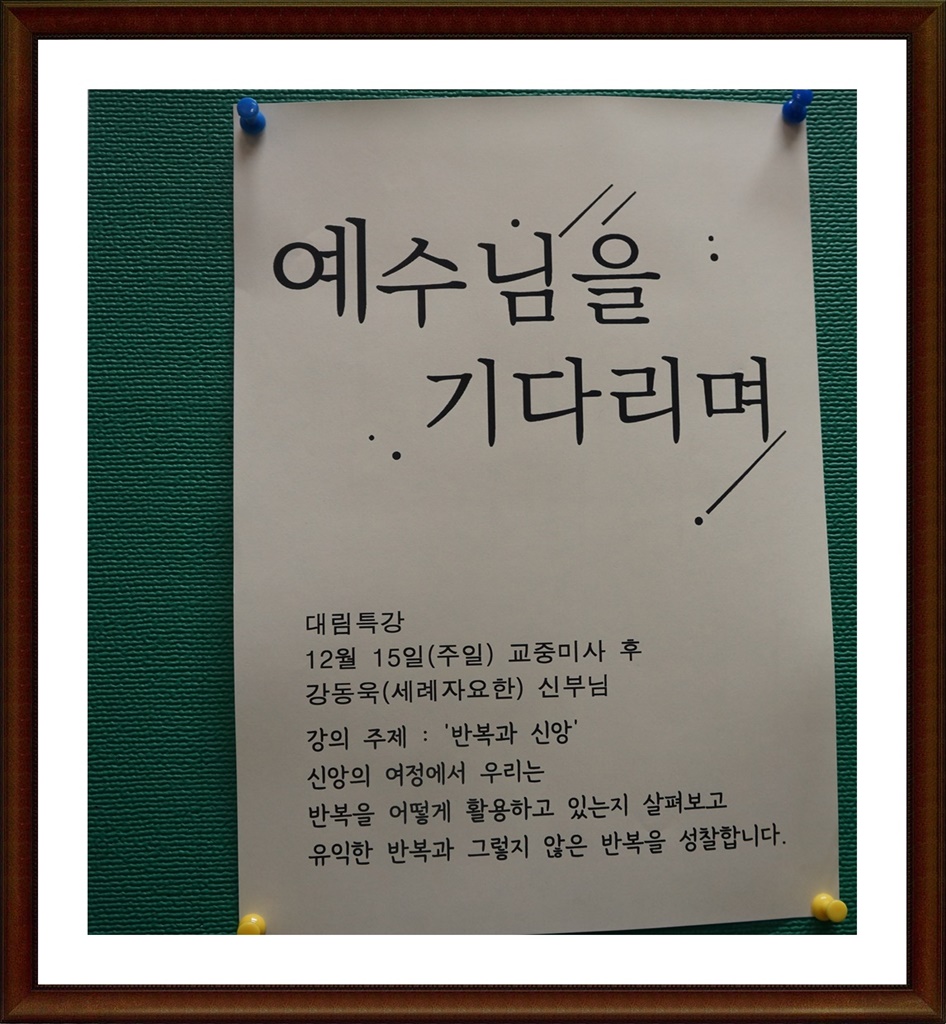 예수님을
기다리며
대림특강
12월 15일(주일) 교중미사 후
강동욱(세례자요한) 신부님
강의 주제 : '반복과 신앙'
신앙의 여정에서 우리는
반복을 어떻게 활용하고 있는지 살펴보고
유익한 반복과 그렇지 않은 반복을 성찰합니다.